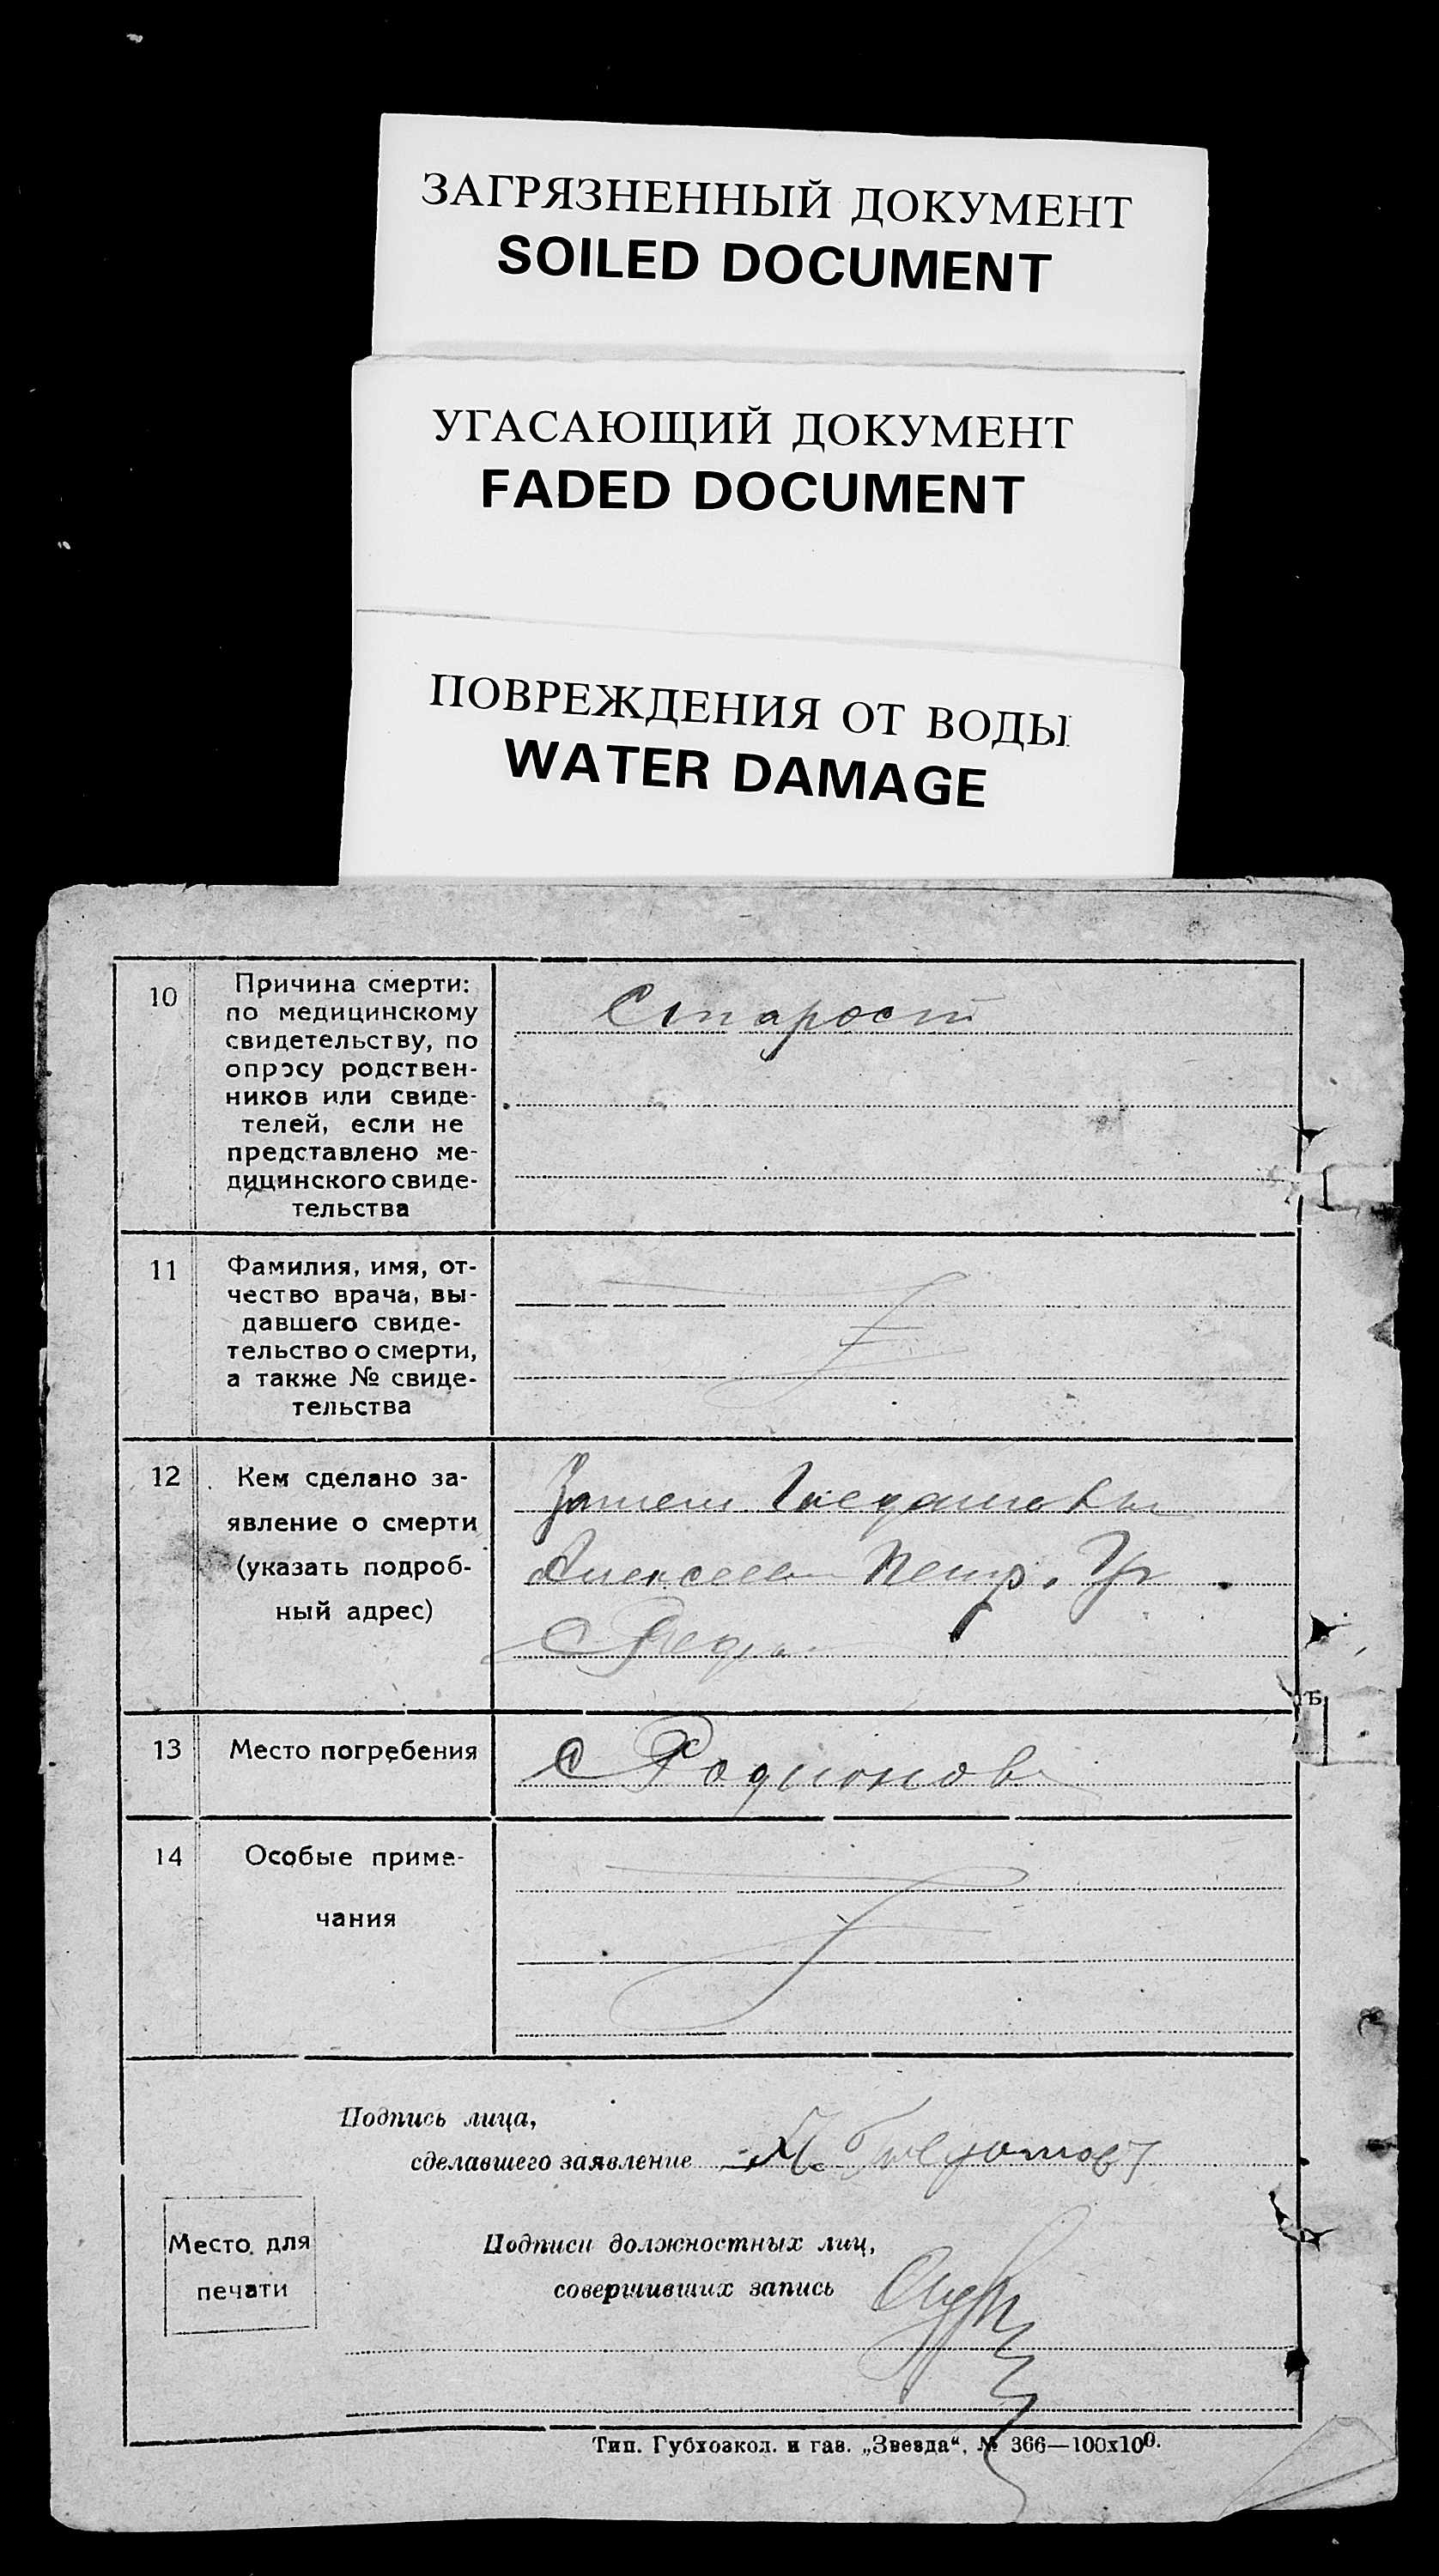 ЗАГРЯЗНЕННЫЙ ДОКУМЕНТ
SOILED DOCUMENT
УГАСАЮЩИЙ ДОКУМЕНТ
FADED DOCUMENT
ПОВРЕЖДЕНИЯ ОТ ВОДЫ
WATER DAMAGE
10
Причина смерти:
по медицинскому
свидетельству, по
опросу родствен-
ников или свиде-
телей, если не
представлено ме-
дицинского свиде-
тельства
Старост
11
Фамилия, имя, от-
чество врача, вы-
давшего свиде-
тельство о смерти,
а также № свиде-
тельства
12
Кем сделано за-
явление о смерти
(указать подроб-
ный адрес)
Петр.
С
13
Место погребения
С Родионов
14
Особые приме-
чания
Подпись лица,
сделавшего заявление
Место для
печати
Подписи должностных лиц,
совершивших запись
Тип. Губхозкол. и газ. „Звезда“, № 366—100х100.